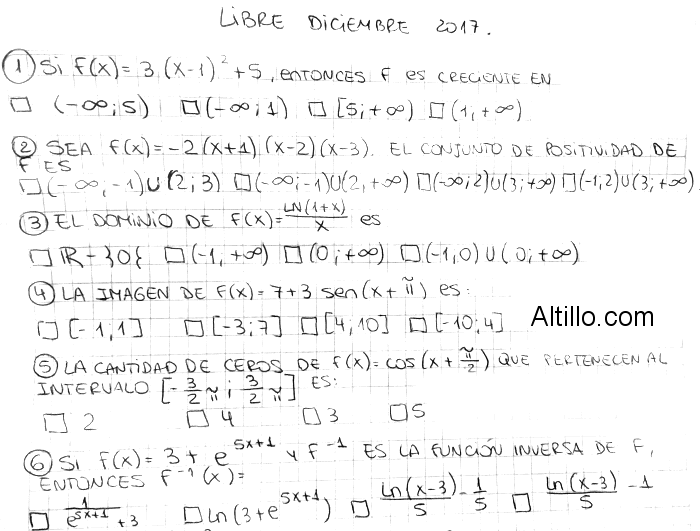 LIBRE DICIEMBRE 2017.
① Si f(x) = 3.(x-1)² + 5, ENTONCES f es CRECIENTE EN
□ (-∞; 5) □ (-∞; 1) □ [5; +∞) □ (1, +∞)
② SEA f(x) = -2(x+1).(x-2)(x-3). EL CONJUNTO DE POSITIVIDAD DE
f ES
□ (-∞, -1)∪(2; 3) □ (-∞; -1)∪(2, +∞) □ (-∞; 2)∪(3; +∞) □ (-1, 2)∪(3; +∞)
③ EL DOMINIO DE f(x) = LN(1+x)/x es
□ ℝ - }0{ □ (-1, +∞) □ (0; +∞) □ (-1, 0) ∪ (0; +∞)
④ LA IMAGEN DE f(x) = 7 + 3 sen(x + π) es:
□ [-1; 1] □ [-3; 7] □ [4; 10] □ [-10; 4]
Altillo.com
⑤ LA CANTIDAD DE CEROS DE f(x) = cos(x + π/2) QUE PERTENECEN AL
INTERVALO [-3/2 π; 3/2 π] ES:
□ 2 □ 4 □ 3 □ 5
⑥ Si f(x) = 3 + e^(5x+1) y f⁻¹ ES LA FUNCIÓN INVERSA DE f,
ENTONCES f⁻¹(x) =
□ 1/(e^(5x+1) + 3) □ ln(3 + e^(5x+1)) □ ln(x-3)/5 - 1/5 □ ln(x-3)/5 - 1